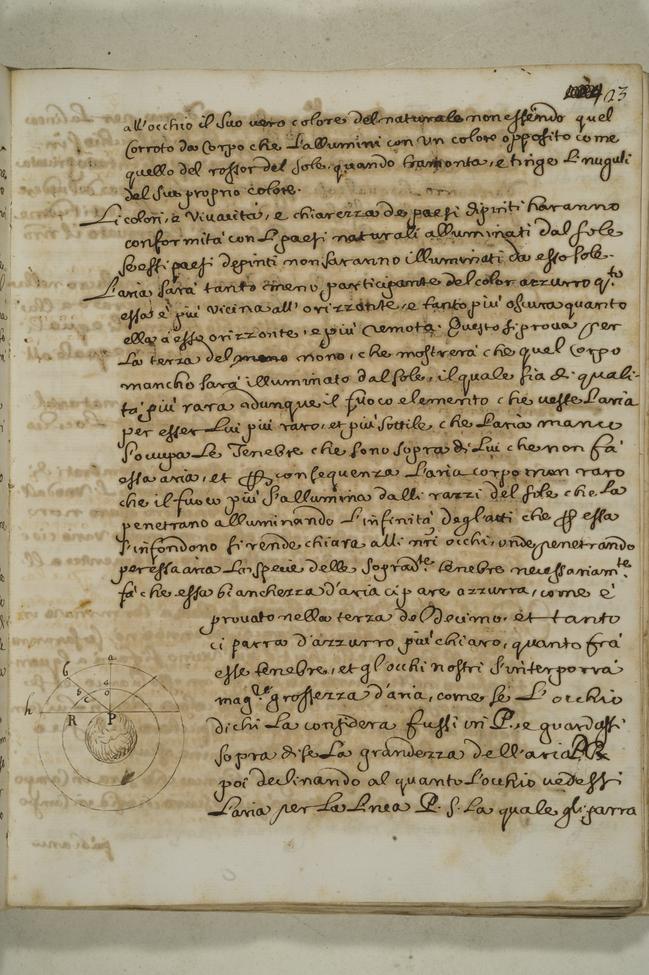 103
all'occhio il suo vero colore del naturale non essendo quel
Corroto da Corpo che L'allumini con un colore opposito come
quello del rossor del sole, quando tramonta, e tinge Li nuguli
del suo proprio colore.
Li colori, e Vivacità, e chiarezza de paesi dipinti haranno
conformità con Li paesi naturali alluminati dal sole
se essi paesi depinti non saranno illuminati da esso sole.
L'aria sarà tanto meno, participante del color azzurro q.to
essa è più vicina all'orizzonte, e tanto più oscura quanto
ella a esse orizzonte, e più remota. Questo si prova per
La terza del nono, che mostrerà che quel Corpo
mancho sarà illuminato dal sole, il quale fia di quali-
tà più rara adunque il fuoco elemento che veste L'aria
per esser Lui più raro, et più sottile che L'aria manco
s'ocupa Le Tenebre che sono sopra di Lui che non fà
essa aria, et p consequenza L'aria corpo men raro
che il fuoco più s'allumina dalli razzi del sole che La
penetrano alluminando L'infinità degl'atti che p essa
s'infondono si rende chiara alli nri occhi, onde penetrando
per essa aria La specie delle soprad.te tenebre necessariam.te
fà che essa bianchezza d'aria ci pare azzurra, come è
provato nella terza del Decimo, et tanto
ci parra d'azzurro più chiaro, quanto frà
esse tenebre, et gl'occhi nostri s'interporrà
mag.re grossezza d'aria, come se L'occhio
di chi La considera fussi in P. e guardassi
sopra di se La grandezza dell'aria
poi declinando al quanto L'occhio vedessi
L'aria per La Linea P. S. La quale gli parra
a
b
h
R
P